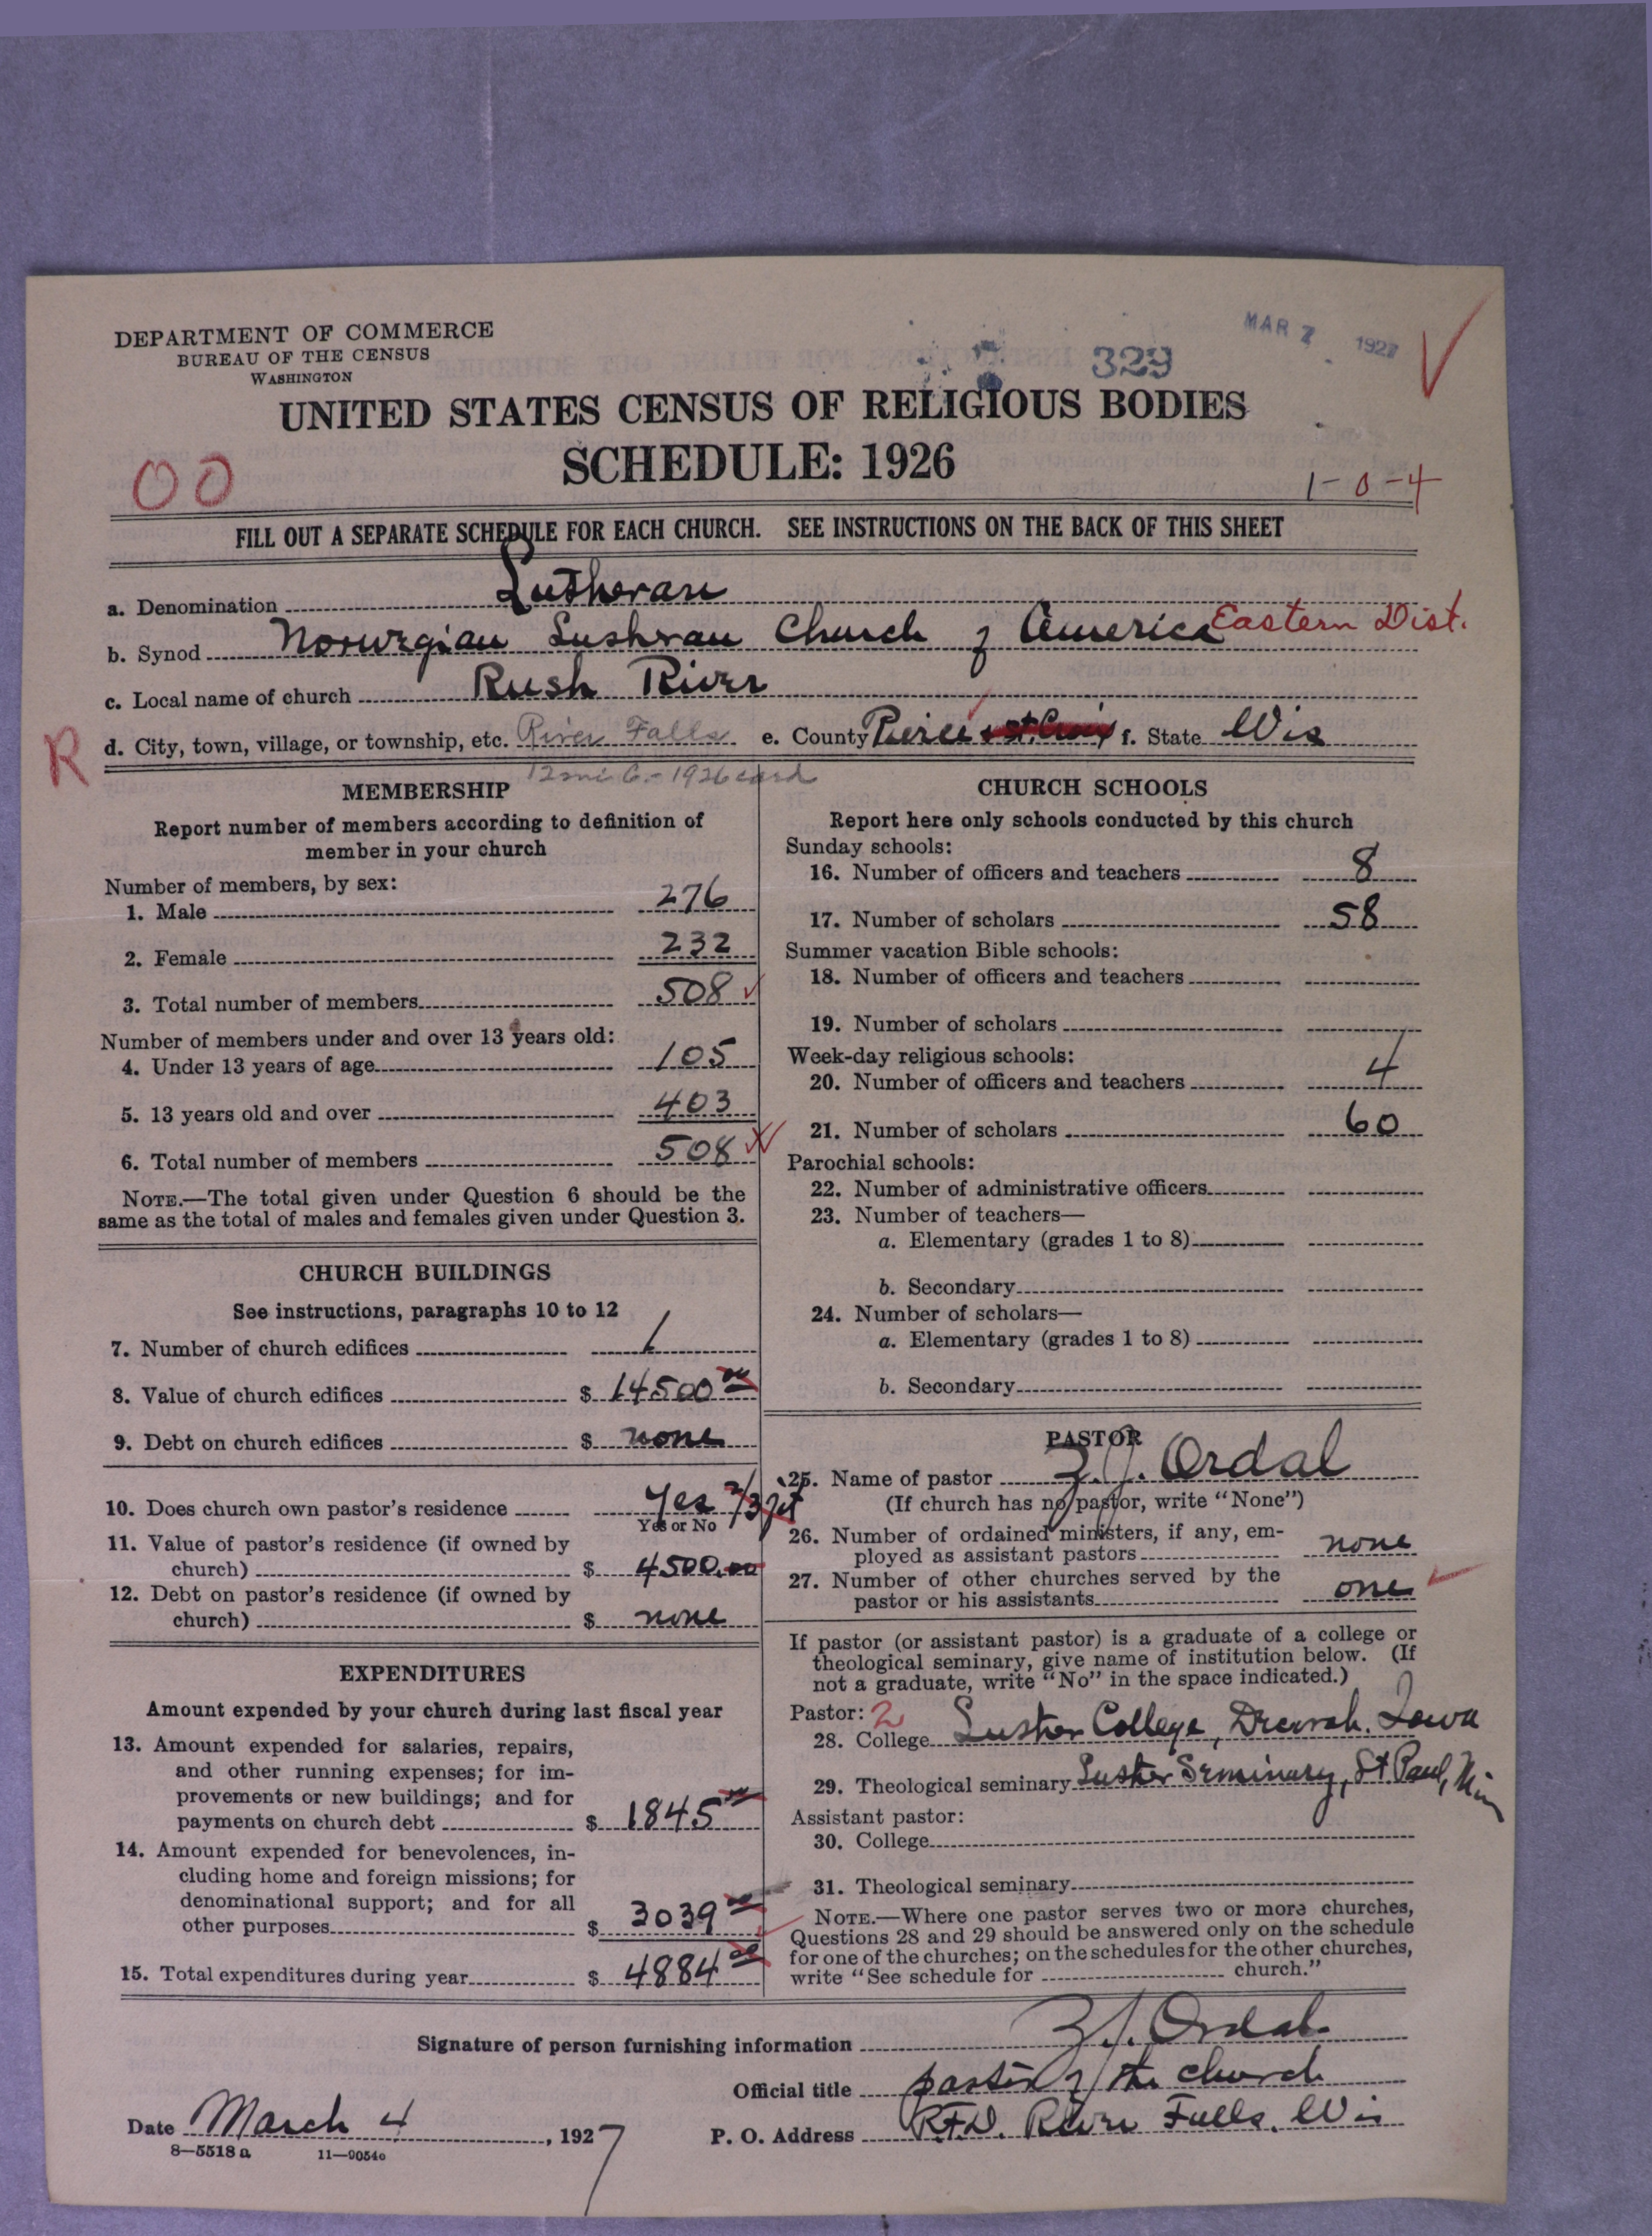 DEPARTMENT OF COMMERCE
BUREAU OF THE CENSUS
WASHINGTON
329
MAR 7 1927
UNITED STATES CENSUS OF RELIGIOUS BODIES
SCHEDULE: 1926
00
1-0-4
FILL OUT A SEPARATE SCHEDULE FOR EACH CHURCH. SEE INSTRUCTIONS ON THE BACK OF THIS SHEET
a. Denomination Lutheran
b. Synod Norwegian Lutheran Church of America Eastern Dist.
c. Local name of church Rush River
R
d. City, town, village, or township, etc. River Falls e. County Pierce & St. Croix f. State Wis
12 mi 6.- 1926 card
MEMBERSHIP
Report number of members according to definition of
member in your church
Number of members, by sex:
1. Male 276
2. Female 232
3. Total number of members 508
Number of members under and over 13 years old:
4. Under 13 years of age 105
5. 13 years old and over 403
6. Total number of members 508
NOTE.—The total given under Question 6 should be the
same as the total of males and females given under Question 3.
CHURCH BUILDINGS
See instructions, paragraphs 10 to 12
7. Number of church edifices 1
8. Value of church edifices $ 14500 00
9. Debt on church edifices $ none
10. Does church own pastor's residence Yes 2/3
Yes or No
11. Value of pastor's residence (if owned by
church) $ 4500.00
12. Debt on pastor's residence (if owned by
church) $ none
EXPENDITURES
Amount expended by your church during last fiscal year
13. Amount expended for salaries, repairs,
and other running expenses; for im-
provements or new buildings; and for
payments on church debt $ 1845 00
14. Amount expended for benevolences, in-
cluding home and foreign missions; for
denominational support; and for all
other purposes $ 3039 00
15. Total expenditures during year $ 4884 00
CHURCH SCHOOLS
Report here only schools conducted by this church
Sunday schools:
16. Number of officers and teachers 8
17. Number of scholars 58
Summer vacation Bible schools:
18. Number of officers and teachers
19. Number of scholars
Week-day religious schools:
20. Number of officers and teachers 4
21. Number of scholars 60
Parochial schools:
22. Number of administrative officers
23. Number of teachers—
a. Elementary (grades 1 to 8)
b. Secondary
24. Number of scholars—
a. Elementary (grades 1 to 8)
b. Secondary
PASTOR
25. Name of pastor Z.J. Ordal
(If church has no pastor, write "None")
26. Number of ordained ministers, if any, em-
ployed as assistant pastors none
27. Number of other churches served by the
pastor or his assistants one
If pastor (or assistant pastor) is a graduate of a college or
theological seminary, give name of institution below. (If
not a graduate, write "No" in the space indicated.)
Pastor: 2
28. College Luther College, Decorah. Iowa
29. Theological seminary Luther Seminary, St Paul, Min
Assistant pastor:
30. College
31. Theological seminary
NOTE.—Where one pastor serves two or more churches,
Questions 28 and 29 should be answered only on the schedule
for one of the churches; on the schedules for the other churches,
write "See schedule for church."
Signature of person furnishing information Z.J. Ordal
Official title pastor of the church
Date March 4, 1927
P. O. Address R.F.D. River Falls. Wis
8—5518 a 11—9054c